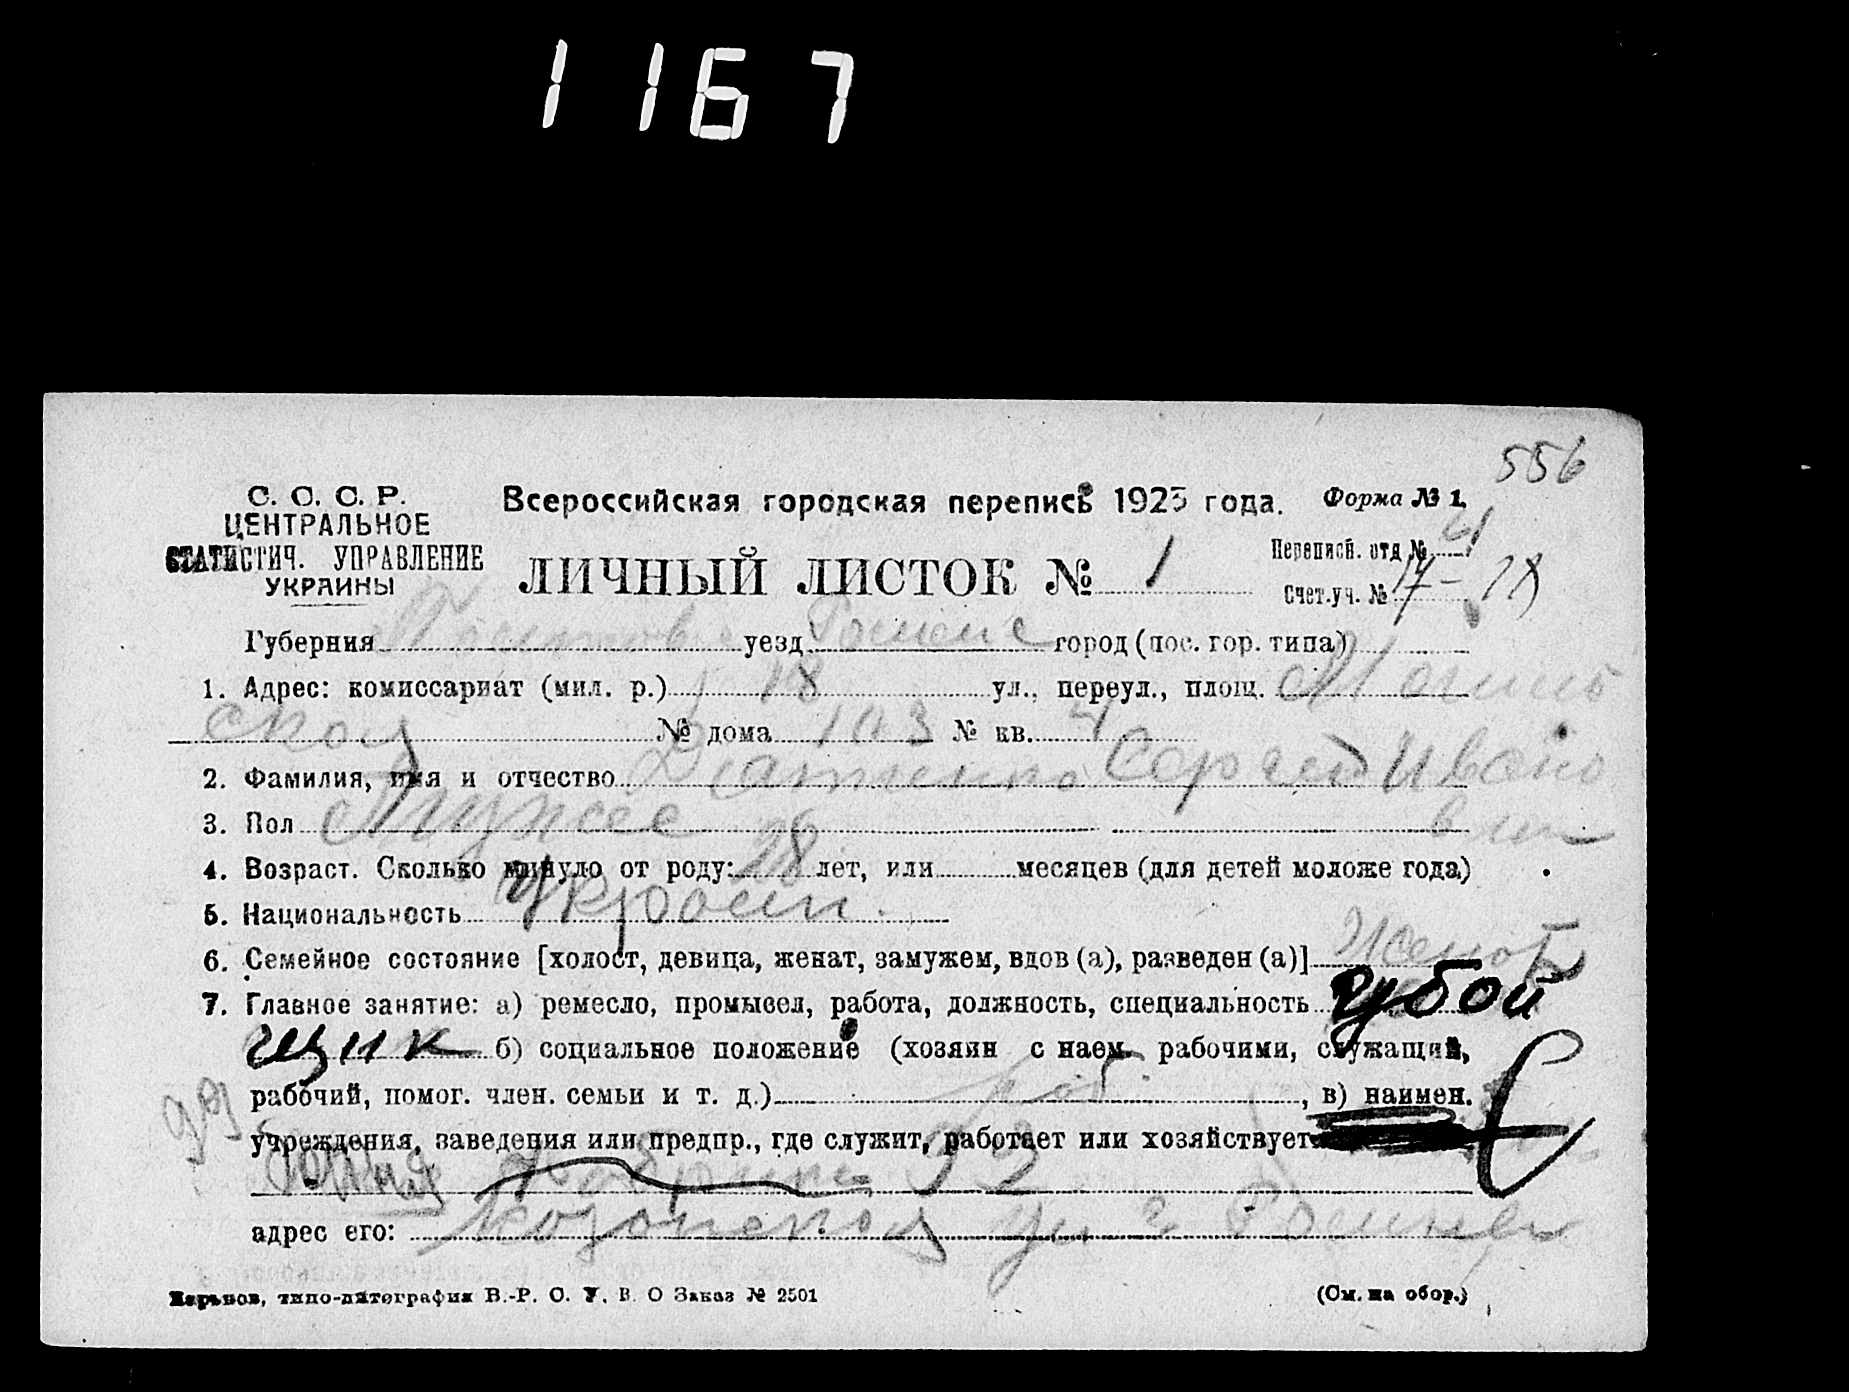 1167
556
С. С. С. Р.
ЦЕНТРАЛЬНОЕ
СТАТИСТИЧ. УПРАВЛЕНИЕ
УКРАИНЫ
Всероссийская городская перепись 1923 года. Форма № 1.
ЛИЧНЫЙ ЛИСТОК № 1
Переписн. отд №
Счет.уч. № 17-18
Губерния уезд город (пос. гор. типа)
1. Адрес: комиссариат (мил. р.) 18 ул., переул., площ.
ской № дома 103 № кв. 4
2. Фамилия, имя и отчество Сергей Ивано
3. Пол Мужес вич
4. Возраст. Сколько минуло от роду: 28 лет, или месяцев (для детей моложе года)
5. Национальность Украин.
6. Семейное состояние [холост, девица, женат, замужем, вдов (а), разведен (а)] Женат
7. Главное занятие: а) ремесло, промысел, работа, должность, специальность
щик б) социальное положение (хозяин с наем. рабочими, служащий,
рабочий, помог. член. семьи и т. д.) раб. , в) наимен.
учреждения, заведения или предпр., где служит, работает или хозяйствует
адрес его: ул г Ромны
Харьков, типо-литография В.-Р. С. У. В. О Заказ № 2501 (См. на обор.)